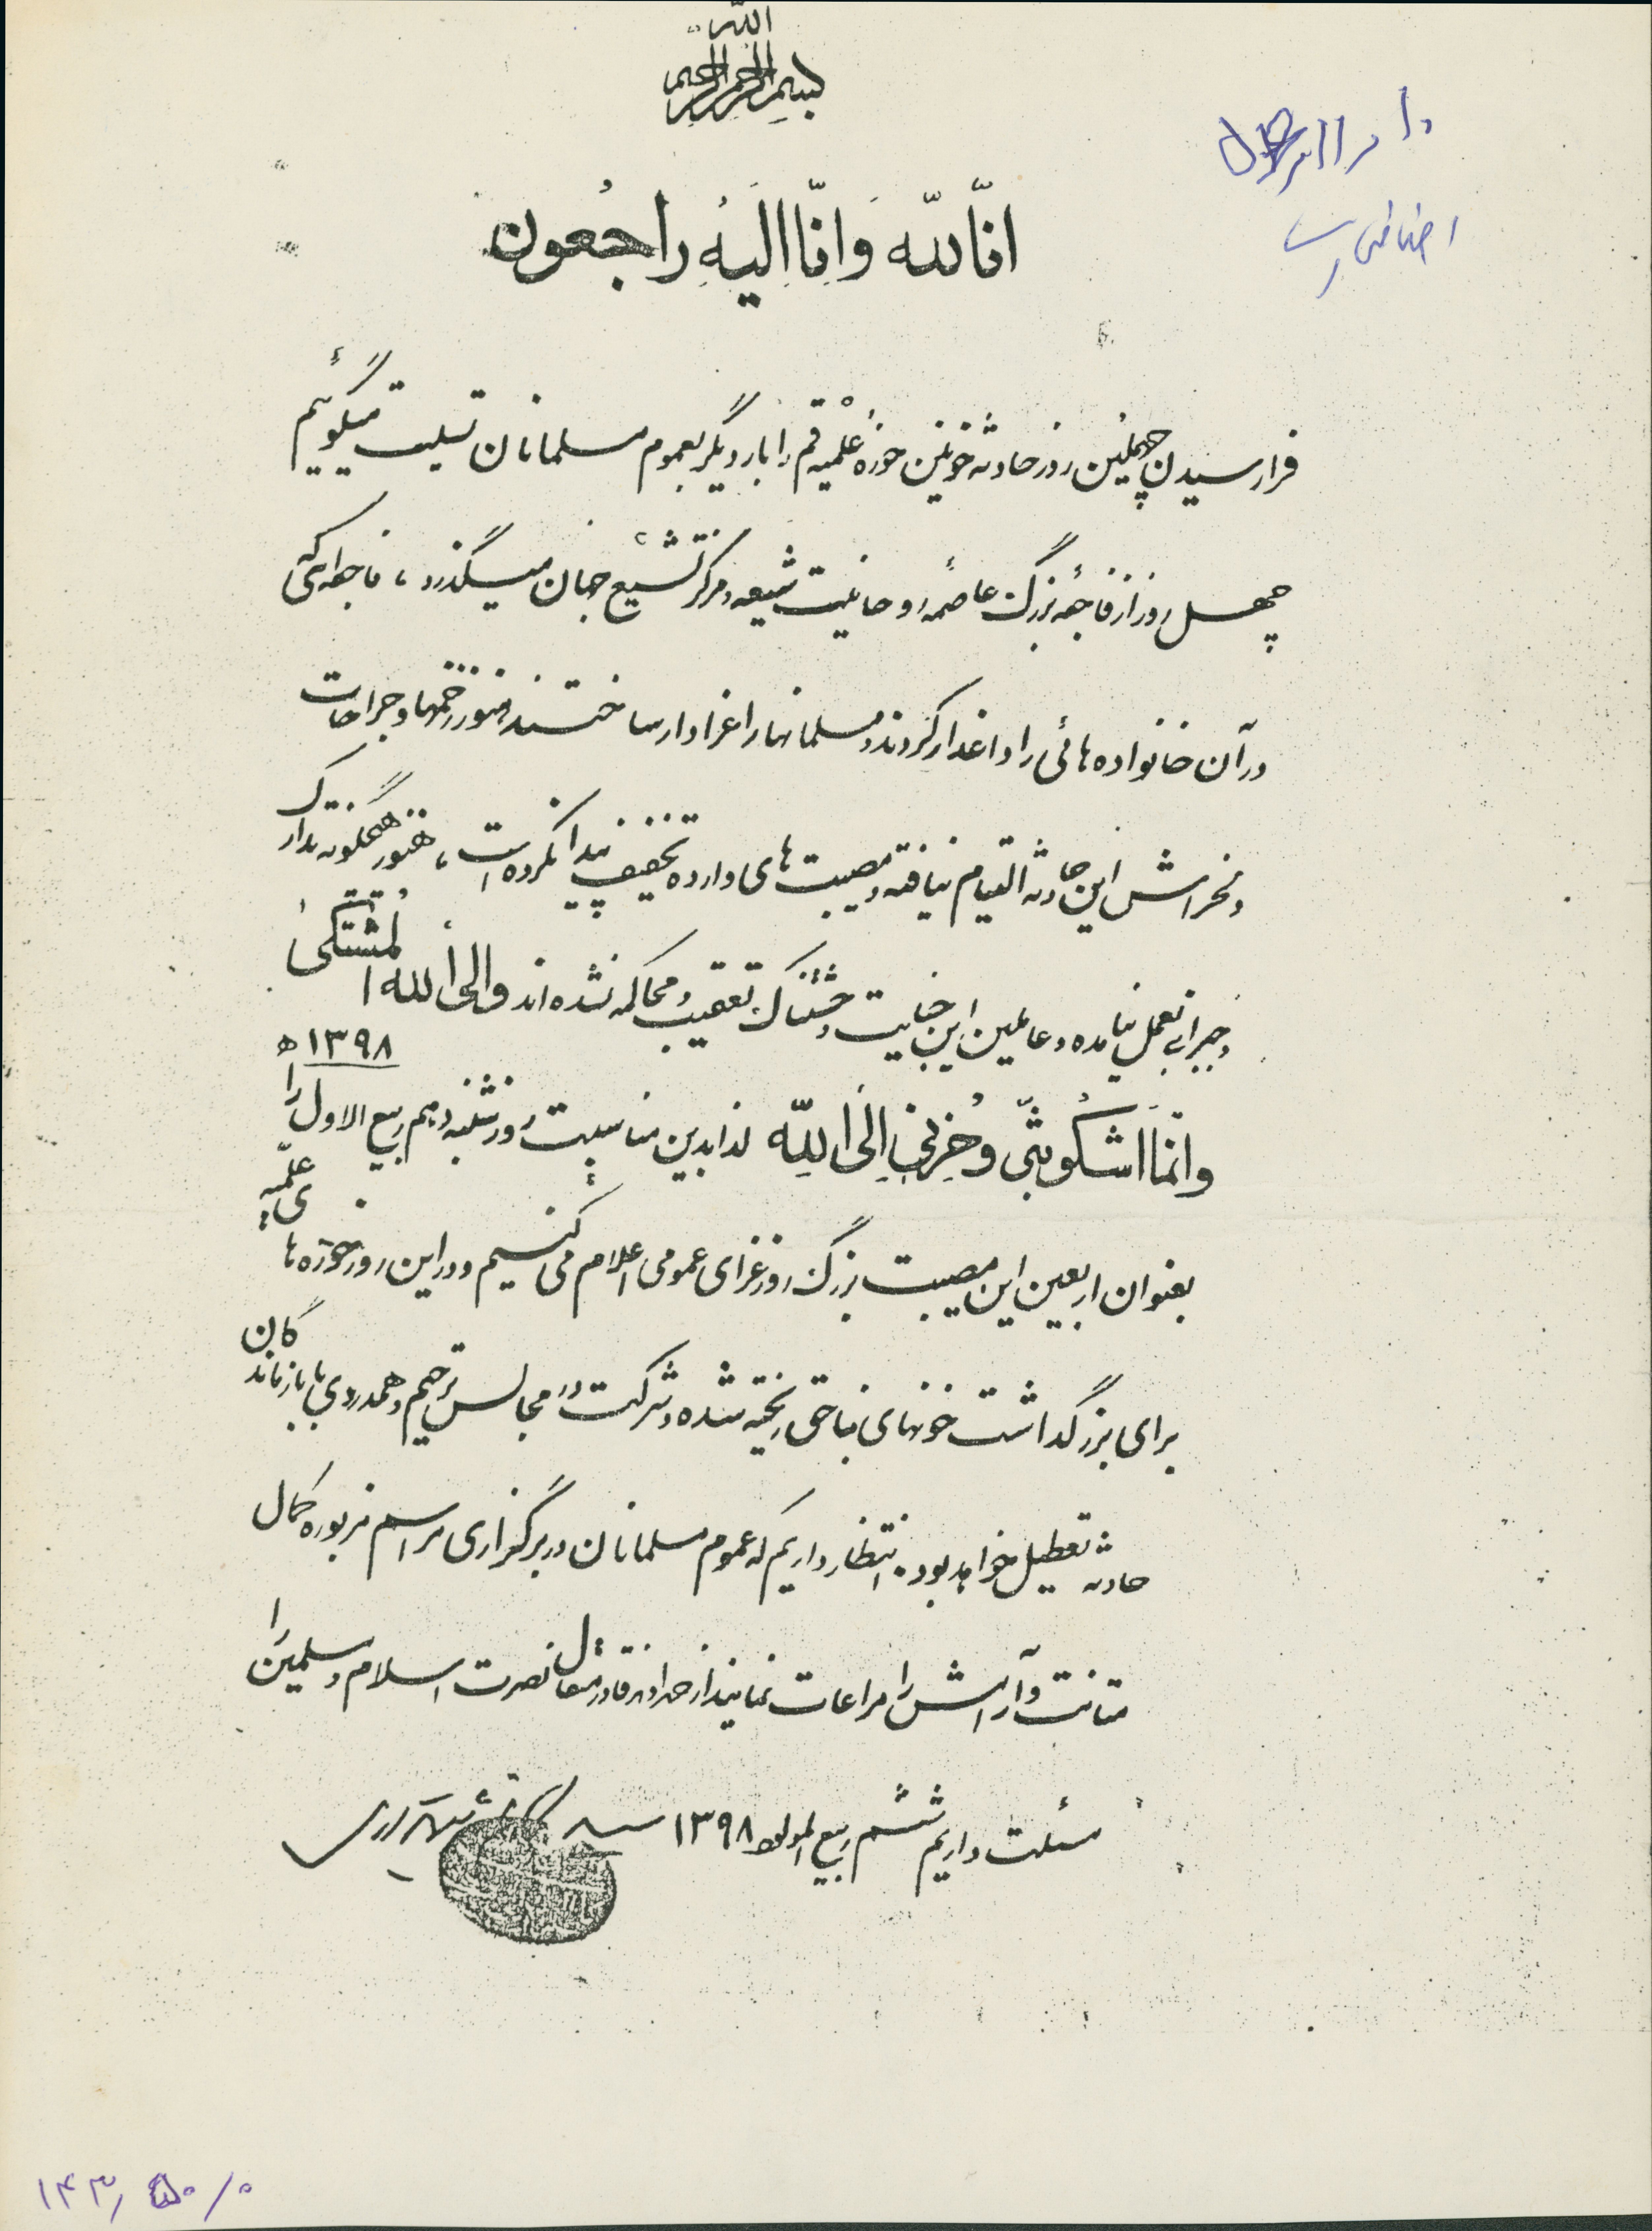 بسم الله الرحمن الرحیم
انّا لله وَ انّا الیهِ راجعُون
اضافی است
فرا رسیدن چهلمین روز حادثه خونین حوزهٔ علمیه قم را بار دیگر بعموم مسلمانان تسلیت میگوئیم
چهل روز از فاجعهٔ بزرگ عاصمهٔ روحانیت شیعه و مرکز تشیع جهان میگذرد، فاجعه‌ای که
در آن خانواده‌هائی را داغدار کردند و مسلمانها را عزادار ساختند هنوز زخمها و جراحات
دلخراش این حادثه التیام نیافته و مصیبت‌های وارده تخفیف پیدا نکرده است، هنوز هیچگونه تدارک
و جبرانی بعمل نیامده و عاملین این جنایت وحشتناک تعقیب و محاکمه نشده‌اند و الی الله المُشتکیٰ
و انّمَا اشکُو بثّی وَ حُزنی اِلَی اللّه لذا بدین مناسبت روز شنبه دهم ربیع الاول ۱۳۹۸ ه را
بعنوان اربعین این مصیبت بزرگ روز عزای عمومی اعلام می کنیم و در این روز حوزه‌های علمیّه
برای بزرگداشت خونهای بناحق ریخته شده و شرکت در مجالس ترحیم و همدردی با بازماندگان
حادثه تعطیل خواهد بود. انتظار داریم که عموم مسلمانان در برگزاری مراسم مزبوره کمال
متانت و آرامش را مراعات نمایند از خداوند قادر متعال نصرت اسلام و مسلمین را
مسئلت داریم ششم ربیع المولود ۱۳۹۸ سید کاظم شریعتمداری